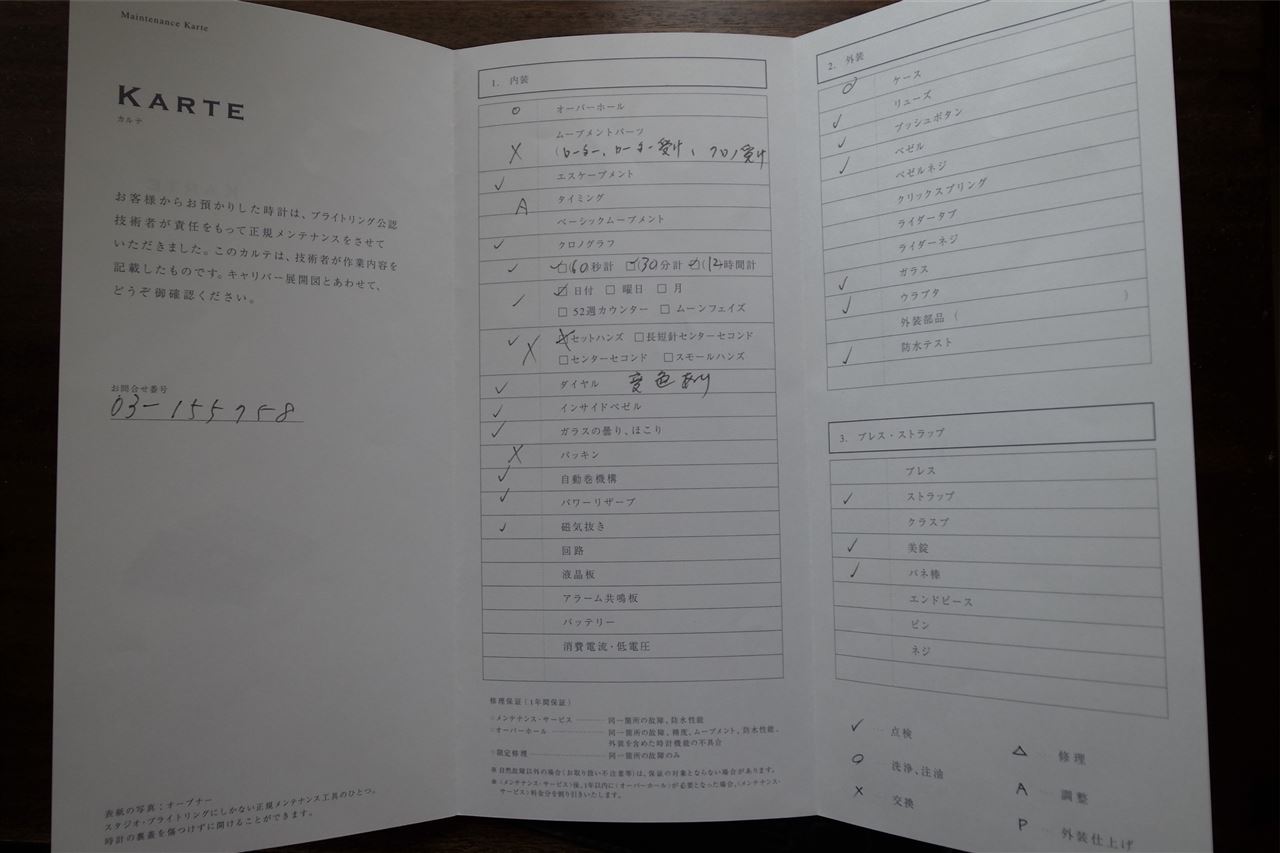 Maintenance Karte
KARTE
カルテ
お客様からお預かりした時計は、ブライトリング公認
技術者が責任をもって正規メンテナンスをさせて
いただきました。このカルテは、技術者が作業内容を
記載したものです。キャリバー展開図とあわせて、
どうぞ御確認ください。
お問合せ番号
03-155758
表紙の写真：オープナー
スタジオ・ブライトリングにしかない正規メンテナンス工具のひとつ。
時計の裏蓋を傷つけずに開けることができます。
1. 内装
○ オーバーホール
ムーブメントパーツ
X (ローター、ローター受け、クロノ受け
✓ エスケープメント
A タイミング
ベーシックムーブメント
✓ クロノグラフ
✓ ☑(60秒計 ☑(30分計 ☑(12時間計
✓ ☑ 日付 □ 曜日 □ 月
□ 52週カウンター □ ムーンフェイズ
✓ X ☒セットハンズ □長短針センターセコンド
□センターセコンド □スモールハンズ
✓ ダイヤル 変色あり
✓ インサイドベゼル
✓ ガラスの曇り、ほこり
X パッキン
✓ 自動巻機構
✓ パワーリザーブ
✓ 磁気抜き
回路
液晶板
アラーム共鳴板
バッテリー
消費電流・低電圧
修理保証（1年間保証）
○メンテナンス・サービス 同一箇所の故障、防水性能
○オーバーホール 同一箇所の故障、精度、ムーブメント、防水性能、
外装を含めた時計機能の不具合
○限定修理 同一箇所の故障のみ
※自然故障以外の場合（お取り扱い不注意等）は、保証の対象とならない場合があります。
※〈メンテナンス・サービス〉後、1年以内に〈オーバーホール〉が必要となった場合、〈メンテナンス・
サービス〉料金分を割り引きいたします。
2. 外装
○ ケース
✓ リューズ
✓ プッシュボタン
✓ ベゼル
ベゼルネジ
クリックスプリング
ライダータブ
ライダーネジ
✓ ガラス
✓ ウラブタ
外装部品（ ）
✓ 防水テスト
3. ブレス・ストラップ
ブレス
✓ ストラップ
クラスプ
✓ 美錠
✓ バネ棒
エンドピース
ピン
ネジ
✓ 点検
○ 洗浄、注油
X 交換
△ 修理
A 調整
P 外装仕上げ